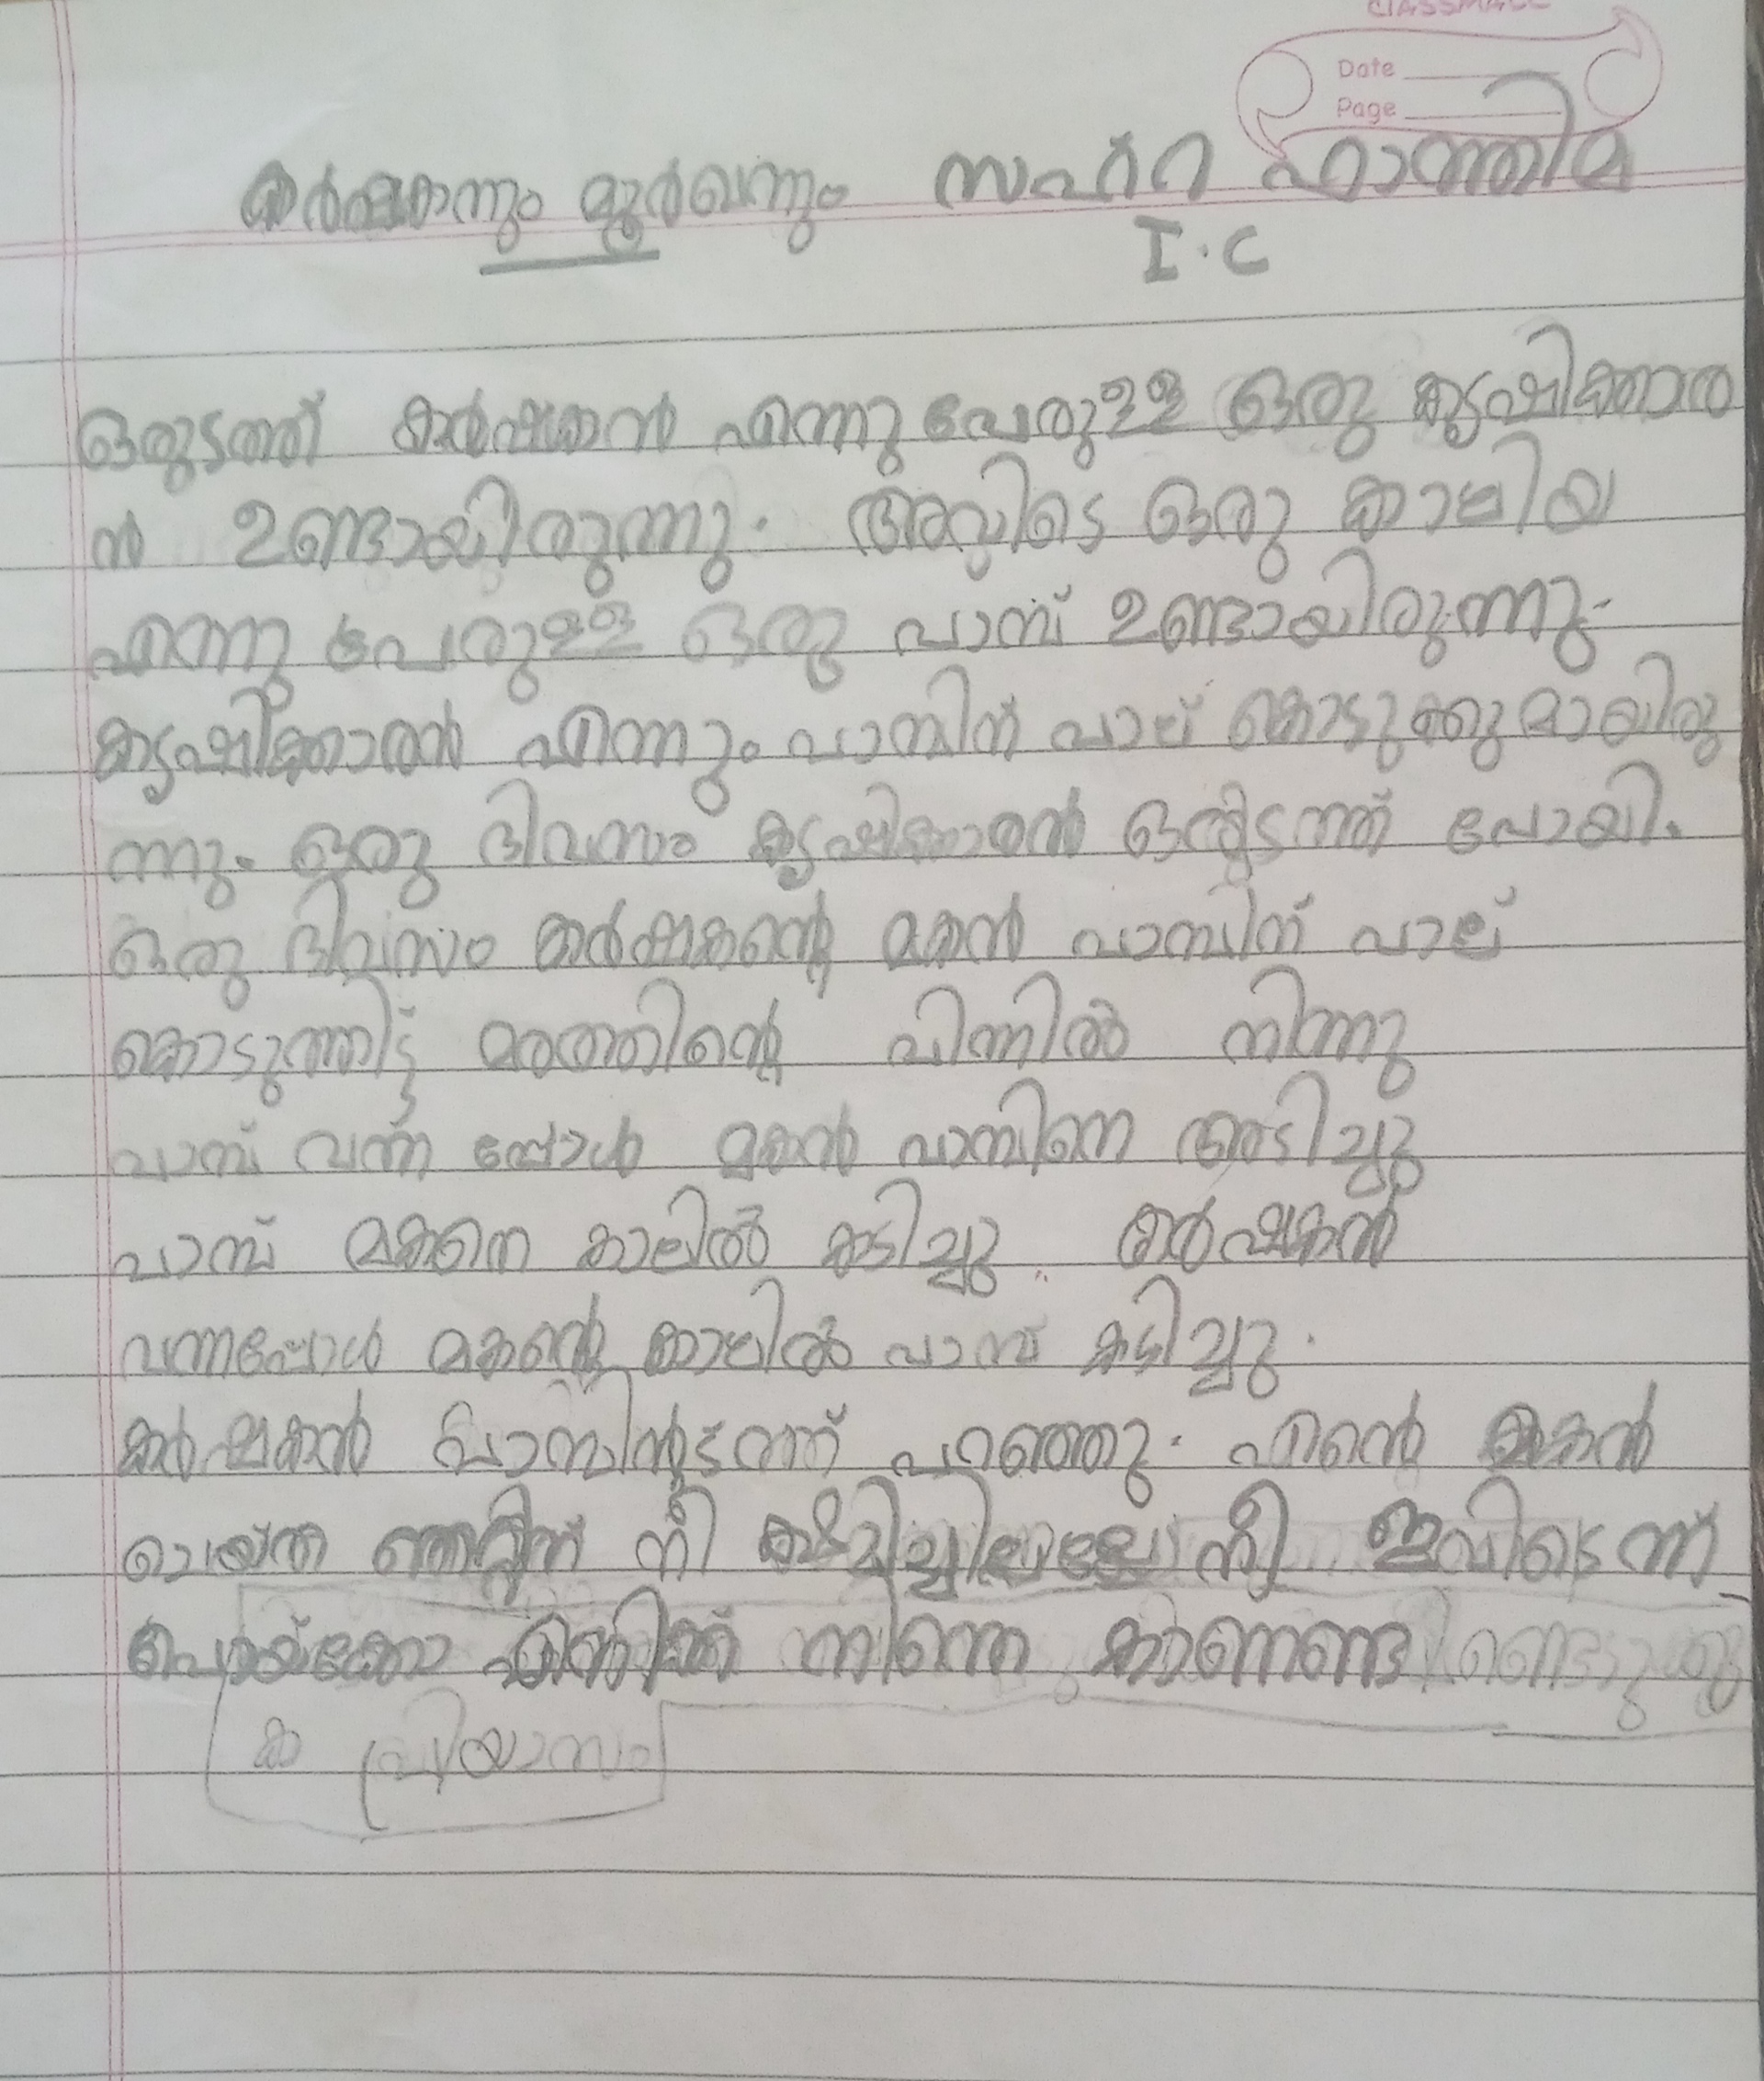 CLASSMATE
Date
Page
കർഷകനും മൂർഖനും സഹ്റ ഫാത്തിമ
I.C
ഒരുടത്ത് കർഷകൻ എന്നു പേരുള്ള ഒരു കൃഷിക്കാര
ൻ ഉണ്ടായിരുന്നു. അവിടെ ഒരു കാലിയ
എന്നു പേരുള്ള ഒരു പാമ്പ് ഉണ്ടായിരുന്നു.
കൃഷിക്കാരൻ എന്നും പാമ്പിന് പാല് കൊടുക്കുമായിരു
ന്നു. ഒരു ദിവസം കൃഷിക്കാരൻ ഒരുടത്ത് പോയി.
ഒരു ദിവസം കർഷകന്റെ മകൻ പാമ്പിന് പാല്
കൊടുത്തിട്ട് മരത്തിന്റെ പിന്നിൽ നിന്നു
പാമ്പ് വന്ന പ്പോൾ മകൻ പാമ്പിനെ അടിച്ചു
പാമ്പ് മകനെ കാലിൽ കടിച്ചു കർഷകൻ
വന്നപ്പോൾ മകന്റെ കാലിൽ പാമ്പ് കടിച്ചു.
കർഷകൻ പാമ്പിൻടത്ത് പറഞ്ഞു. എൻെ മകൻ
ചെയ്ത തെറ്റിന് നീ ക്ഷമിച്ചില്ലല്ലോ നീ ഇവിടെന്ന്
പൊയ്ക്കോ എനിക്ക് നിന്നെ കാണെണ്ട